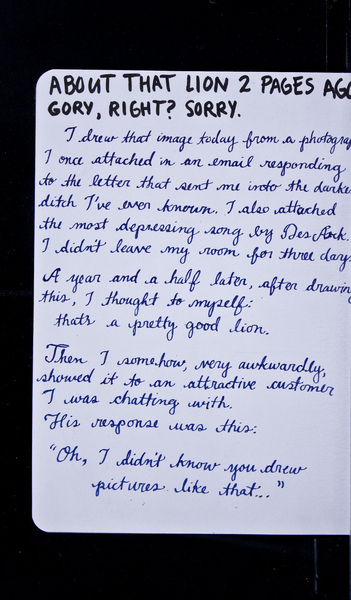 ABOUT THAT LION 2 PAGES AGO
GORY, RIGHT? SORRY.
I drew that image today from a photograp
I once attached in an email responding
to the letter that sent me into the darke
ditch I've ever known. I also attached
the most depressing song by Des Ark.
I didn't leave my room for three days
A year and a half later, after drawin
this, I thought to myself:
that's a pretty good lion.
Then I somehow, very awkwardly,
showed it to an attractive customer
I was chatting with.
His response was this:
"Oh, I didn't know you drew
pictures like that..."